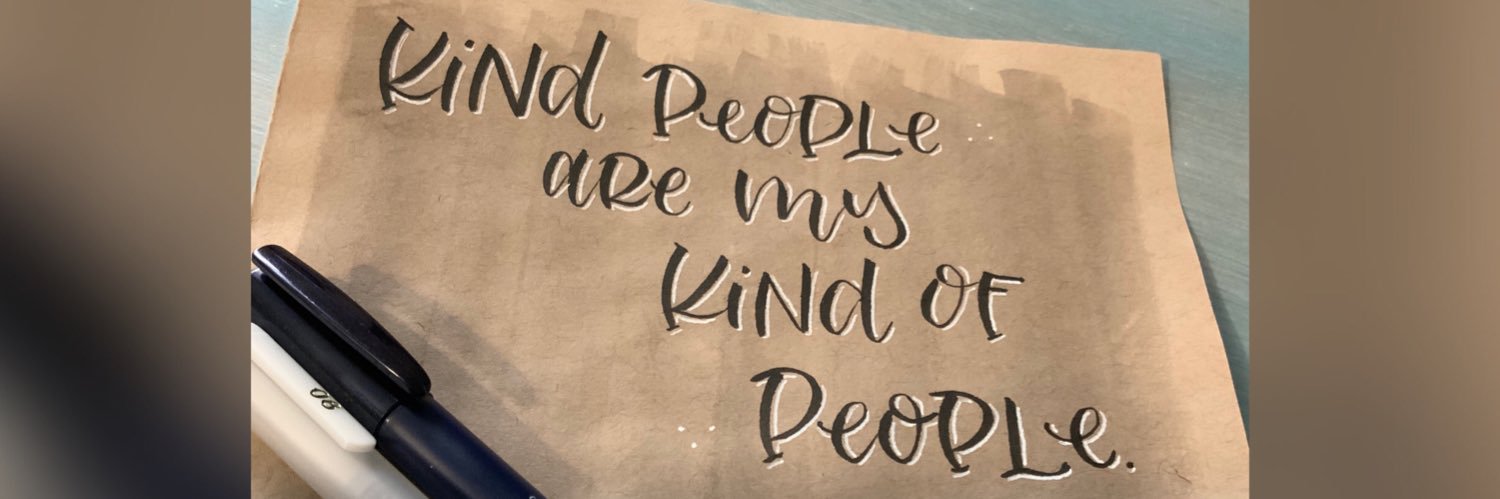 KiNd PeOPLe
aRe my
KiNd OF
PeOPLe.
08